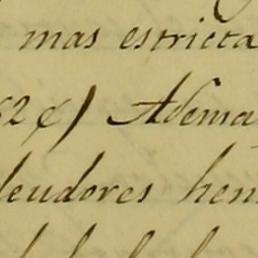 mas estricta
52ȼ) Adema
deudores hen